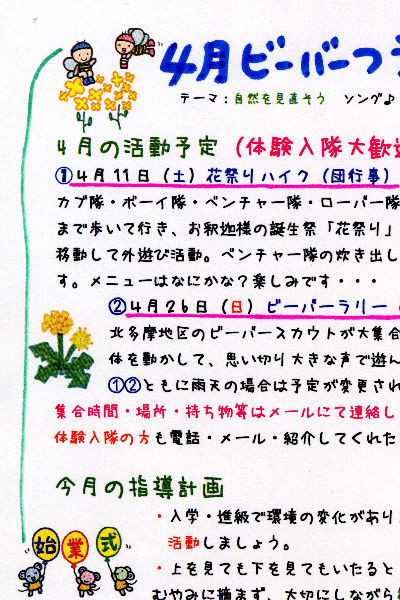 4月ビーバーつ
テーマ：自然を見直そう　ソング♪
4月の活動予定（体験入隊大歓
①4月11日（土）花祭りハイク（団行事）
カブ隊・ボーイ隊・ベンチャー隊・ローバー隊
まで歩いて行き、お釈迦様の誕生祭「花祭り」
移動して外遊び活動。ベンチャー隊の炊き出し
す。メニューはなにかな？楽しみです・・・
②4月26日（日）ビーバーラリー（
北多摩地区のビーバースカウトが大集合
体を動かして、思い切り大きな声で遊ん
①②ともに雨天の場合は予定が変更され
集合時間・場所・持ち物等はメールにて連絡し
体験入隊の方も電話・メール・紹介してくれた
今月の指導計画
・入学・進級で環境の変化があり
活動しましょう。
始業式
・上を見ても下を見てもいたると
むやみに摘まず、大切にしながら